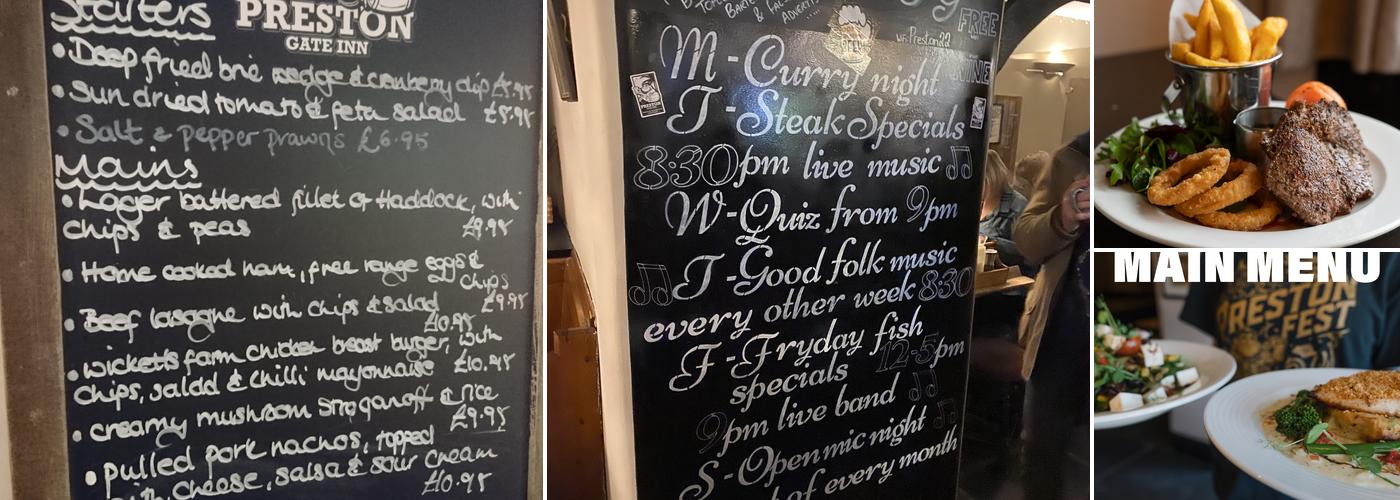 Starters
PRESTON
GATE INN
• Deep fried brie wedge & cranberry dip £5.95
• Sun dried tomato & feta salad £5.95
• Salt & pepper prawns £6.95
Mains
• Lager battered fillet of Haddock, with
chips & peas £9.95
• Home cooked ham, free range eggs &
chips £9.95
• Beef lasagne with chips & salad £10.95
• wicketts farm chicken breast burger, with
chips, salad & chilli mayonnaise £10.95
• creamy mushroom stroganoff & rice
£9.95
• pulled pork nachos, topped
with cheese, salsa & sour cream
£10.95
FREE
M - Curry night
T - Steak Specials
8:30pm live music
W - Quiz from 9pm
T - Good folk music
every other week 8:30
F - Fryday fish
specials 12-5pm
9pm live band
S - Open mic night
of every month
MAIN MENU
PRESTON
FEST